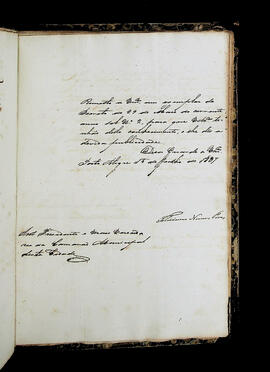 Remetto a Vmces um exemplar do
Decreto de 29 de Abril do corrente
anno sob Nº 2, para que Vmces te-
nhão delle conhecimento, e lhe dê a
devida publicidade.
Deos Guarde a Vmces
Porto Alegre de Junho de 1837
Nunes Pires
Presidente e mais Vereado
res da Camara Municipal
desta Cidade